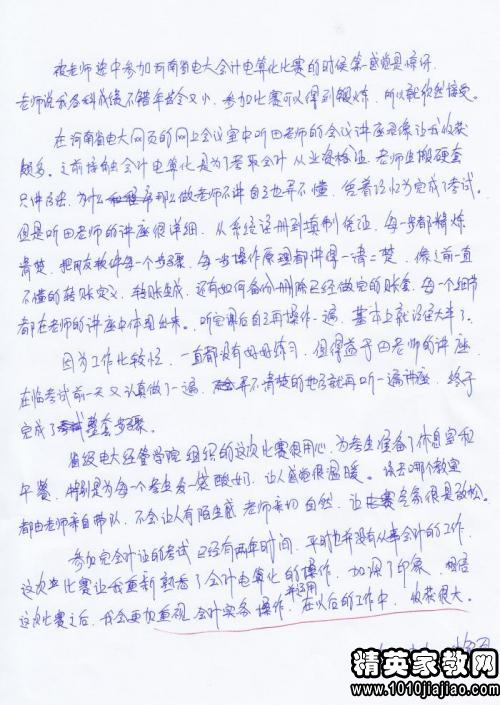 被老师选中参加河南省电大会计电算化比赛的时候第一感觉是惊讶,
老师说我各科成绩不错年龄又小,参加比赛可以得到锻炼,所以就欣然接受。
在河南省电大网页的网上会议室中听田老师的会议讲座录像让我收获
颇多。之前接触会计电算化是为了考取会计从业资格证,老师生搬硬套
只讲方法,为什么那么做老师不讲自己也弄不懂,凭着记忆为完成了考试。
但是听田老师的讲座很详细,从系统注册到填制凭证,每一步都精炼
清楚,把用友软件每一个步骤,每一步操作原理都讲得一清二楚,像之前一直
不懂的转账定义,转账生成,还有如何备份删除已经做完的账套,每一个细节
都在老师的讲座中体现出来。听完课后自己再操作一遍,基本上就没大碍了。
因为工作比较忙,一直都没有好好练习,但得益于田老师的讲座,
在临考试前一天又认真做了一遍,弄不清楚的地方就再听一遍讲座,终于
完成了整套步骤。
省级电大经管学院组织的这次比赛很用心,为考生准备了休息室和
午餐,特别是为每个考生发一袋酸奶,让人感觉很温暖。该去哪个教室
都由老师亲自带队,不会让人有陌生感,老师亲切自然,让比赛气氛很是放松。
参加完会计证的考试已经有两年时间,平时也并没有从事会计的工作,
这次比赛让我重新熟悉了会计电算化的操作,加深了印象,相信
这次比赛之后,我会更加重视会计实务操作,并运用在以后的工作中,收获很大。
精英家教网
www.1010jiajiao.com